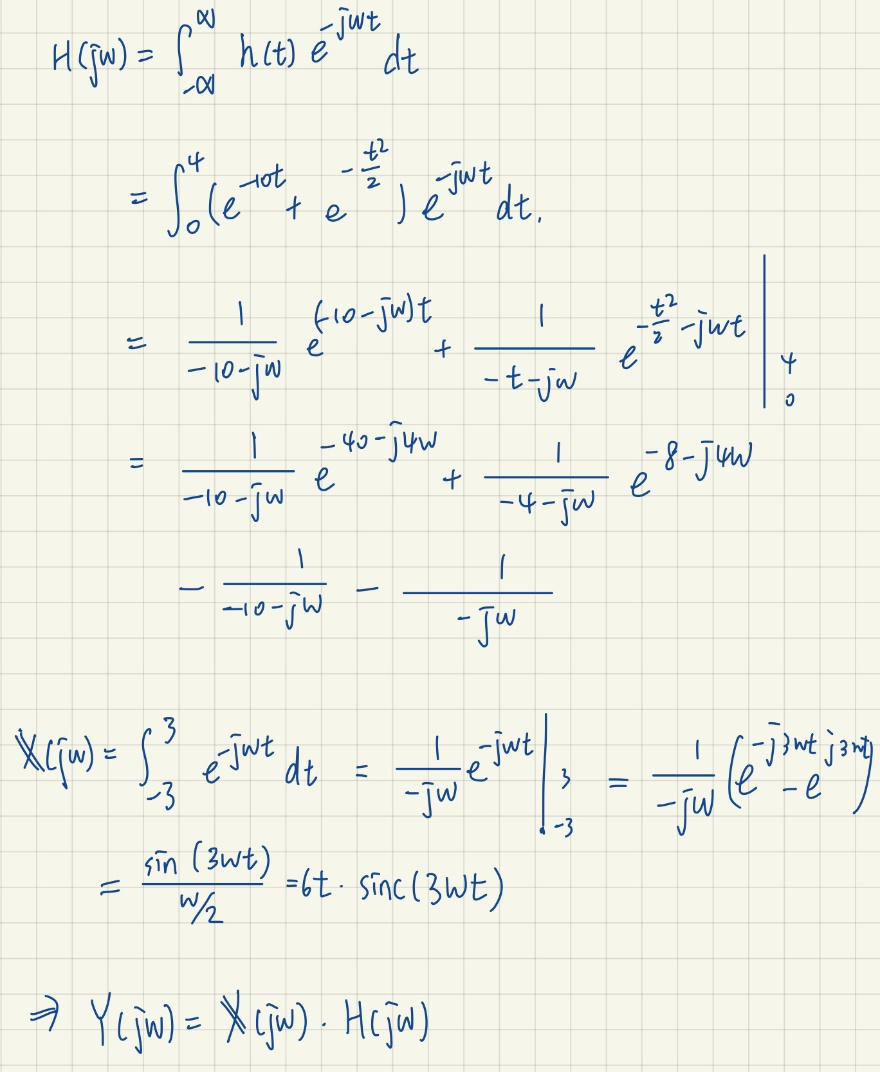 H(jw) = ∫_{-∞}^{∞} h(t) e^{-jwt} dt
= ∫_0^4 (e^{-10t} + e^{-t²/2}) e^{-jwt} dt.
= 1/(-10-jw) e^{(-10-jw)t} + 1/(-t-jw) e^{-t²/2 - jwt} |_0^4
= 1/(-10-jw) e^{-40-j4w} + 1/(-4-jw) e^{-8-j4w}
- 1/(-10-jw) - 1/(-jw)
X(jw) = ∫_{-3}^3 e^{-jwt} dt = 1/(-jw) e^{-jwt} |_{-3}^3 = 1/(-jw) (e^{-j3wt} - e^{j3wt})
= sin(3wt)/(w/2) = 6t · sinc(3wt)
⇒ Y(jw) = X(jw) · H(jw)